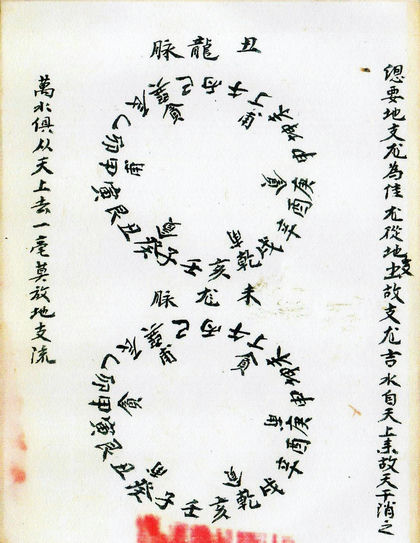 總要地支龙為佳龙從地支出故支龙吉水自天上来故天干消之
丑龍脉
壬子癸丑艮寅甲卯乙辰巽巳丙午丁未坤申庚酉辛戌乾亥
貪
貪
未龙脉
壬子癸丑艮寅甲卯乙辰巽巳丙午丁未坤申庚酉辛戌乾亥
貪
貪
萬水俱从天上去一毫莫放地支流